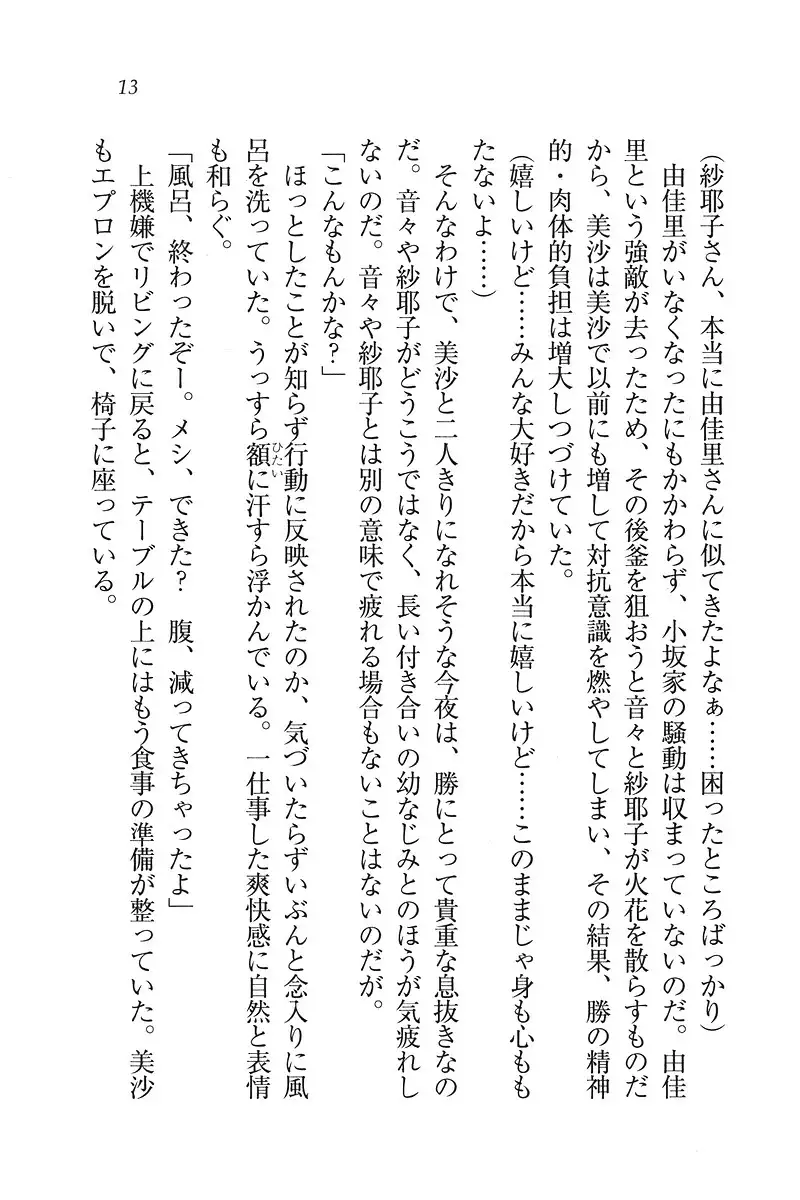 13
(紗耶子さん、本当に由佳里さんに似てきたよなぁ……困ったところばっかり)
由佳里がいなくなったにもかかわらず、小坂家の騒動は収まっていないのだ。由佳
里という強敵が去ったため、その後釜を狙おうと音々と紗耶子が火花を散らすものだ
から、美沙は美沙で以前にも増して対抗意識を燃やしてしまい、その結果、勝の精神
的・肉体的負担は増大しつづけていた。
(嬉しいけど……みんな大好きだから本当に嬉しいけど……このままじゃ身も心もも
たないよ……)
そんなわけで、美沙と二人きりになれそうな今夜は、勝にとって貴重な息抜きなの
だ。音々や紗耶子がどうこうではなく、長い付き合いの幼なじみとのほうが気疲れし
ないのだ。音々や紗耶子とは別の意味で疲れる場合もないことはないのだが。
「こんなもんかな?」
ほっとしたことが知らず行動に反映されたのか、気づいたらずいぶんと念入りに風
呂を洗っていた。うっすら額ひたいに汗すら浮かんでいる。一仕事した爽快感に自然と表情
も和らぐ。
「風呂、終わったぞー。メシ、できた? 腹、減ってきちゃったよ」
上機嫌でリビングに戻ると、テーブルの上にはもう食事の準備が整っていた。美沙
もエプロンを脱いで、椅子に座っている。